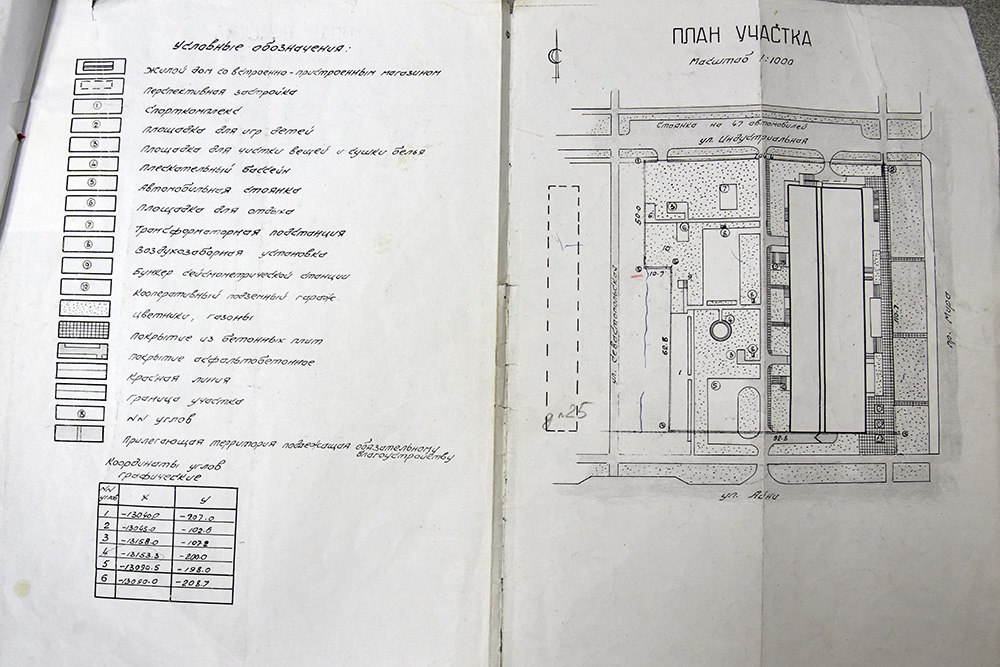 Условные обозначения:
Жилой дом со встроенно-пристроенным магазином
Перспективная застройка
1 Спорткомплекс
2 Площадка для игр детей
3 Площадка для чистки вещей и сушки белья
4 Плескательный бассейн
5 Автомобильная стоянка
6 Площадка для отдыха
7 Трансформаторная подстанция
8 Воздухозаборная установка
9 Бункер сейсмометрической станции
10 Кооперативный подземный гараж
Цветники, газоны
Покрытие из бетонных плит
Покрытие асфальтобетонное
Красная линия
Граница участка
NN углов
Прилегающая территория подлежащая обязательному
благоустройству
Координаты углов
графические
NN углов X У
1 -13040.0 -207.0
2 -13045.0
3 -13158.0
4 -13153.3 -200.0
5 -13090.5 -198.0
6 -13090.0 -208.7
С
ПЛАН УЧАСТКА
Масштаб 1:1000
Стоянка на 47 автомобилей
ул. Индустриальная
50.0
10.7
62.8
ул. Севастопольская
пр. Мира
92.8
ул. Азни